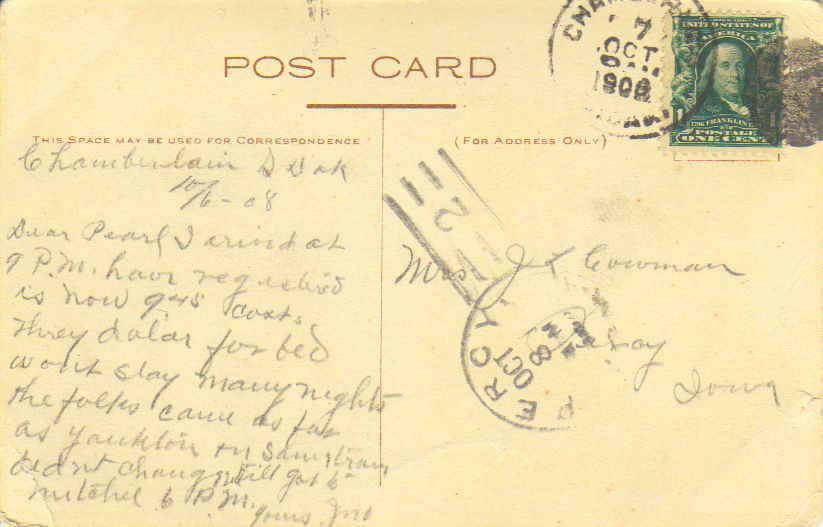 POST CARD
THIS SPACE MAY BE USED FOR CORRESPONDENCE
(FOR ADDRESS ONLY)
CHAMBER
7
OCT
1908
UNITED STATES OF
AMERICA
FRANKLIN
POSTAGE
ONE CENT
Chamberlain S Dak
10/6-08
Dear Pearl I arived at
9 P.M. have registred
is now 9.45 cost
three dolar for bed
wont stay many nights
the folks came as far
as Yankton on same train
did nt change till got to
Mitchel 6 P.M.
yours Jno
Mrs. J Cowman
Iowa
PERCY
OCT
8